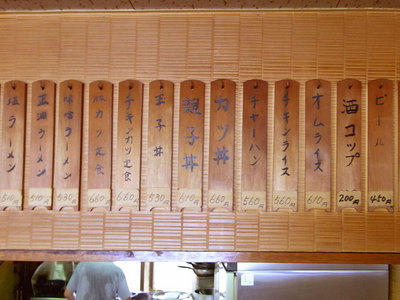 ビール 450円
酒コップ 200円
オムライス 610円
チキンライス 560円
チャーハン 560円
カツ丼 660円
親子丼 610円
玉子丼 530円
チキンカツ定食 660円
カツ定食 660円
味噌ラーメン 530円
正油ラーメン 510円
塩ラーメン 510